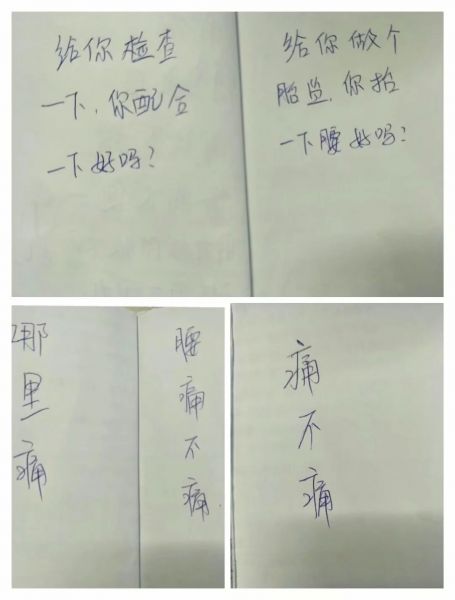 给你检查
一下,你配合
一下好吗?
给你做个
胎监,你抬
一下腰好吗?
哪里痛
腰痛不痛
痛不痛